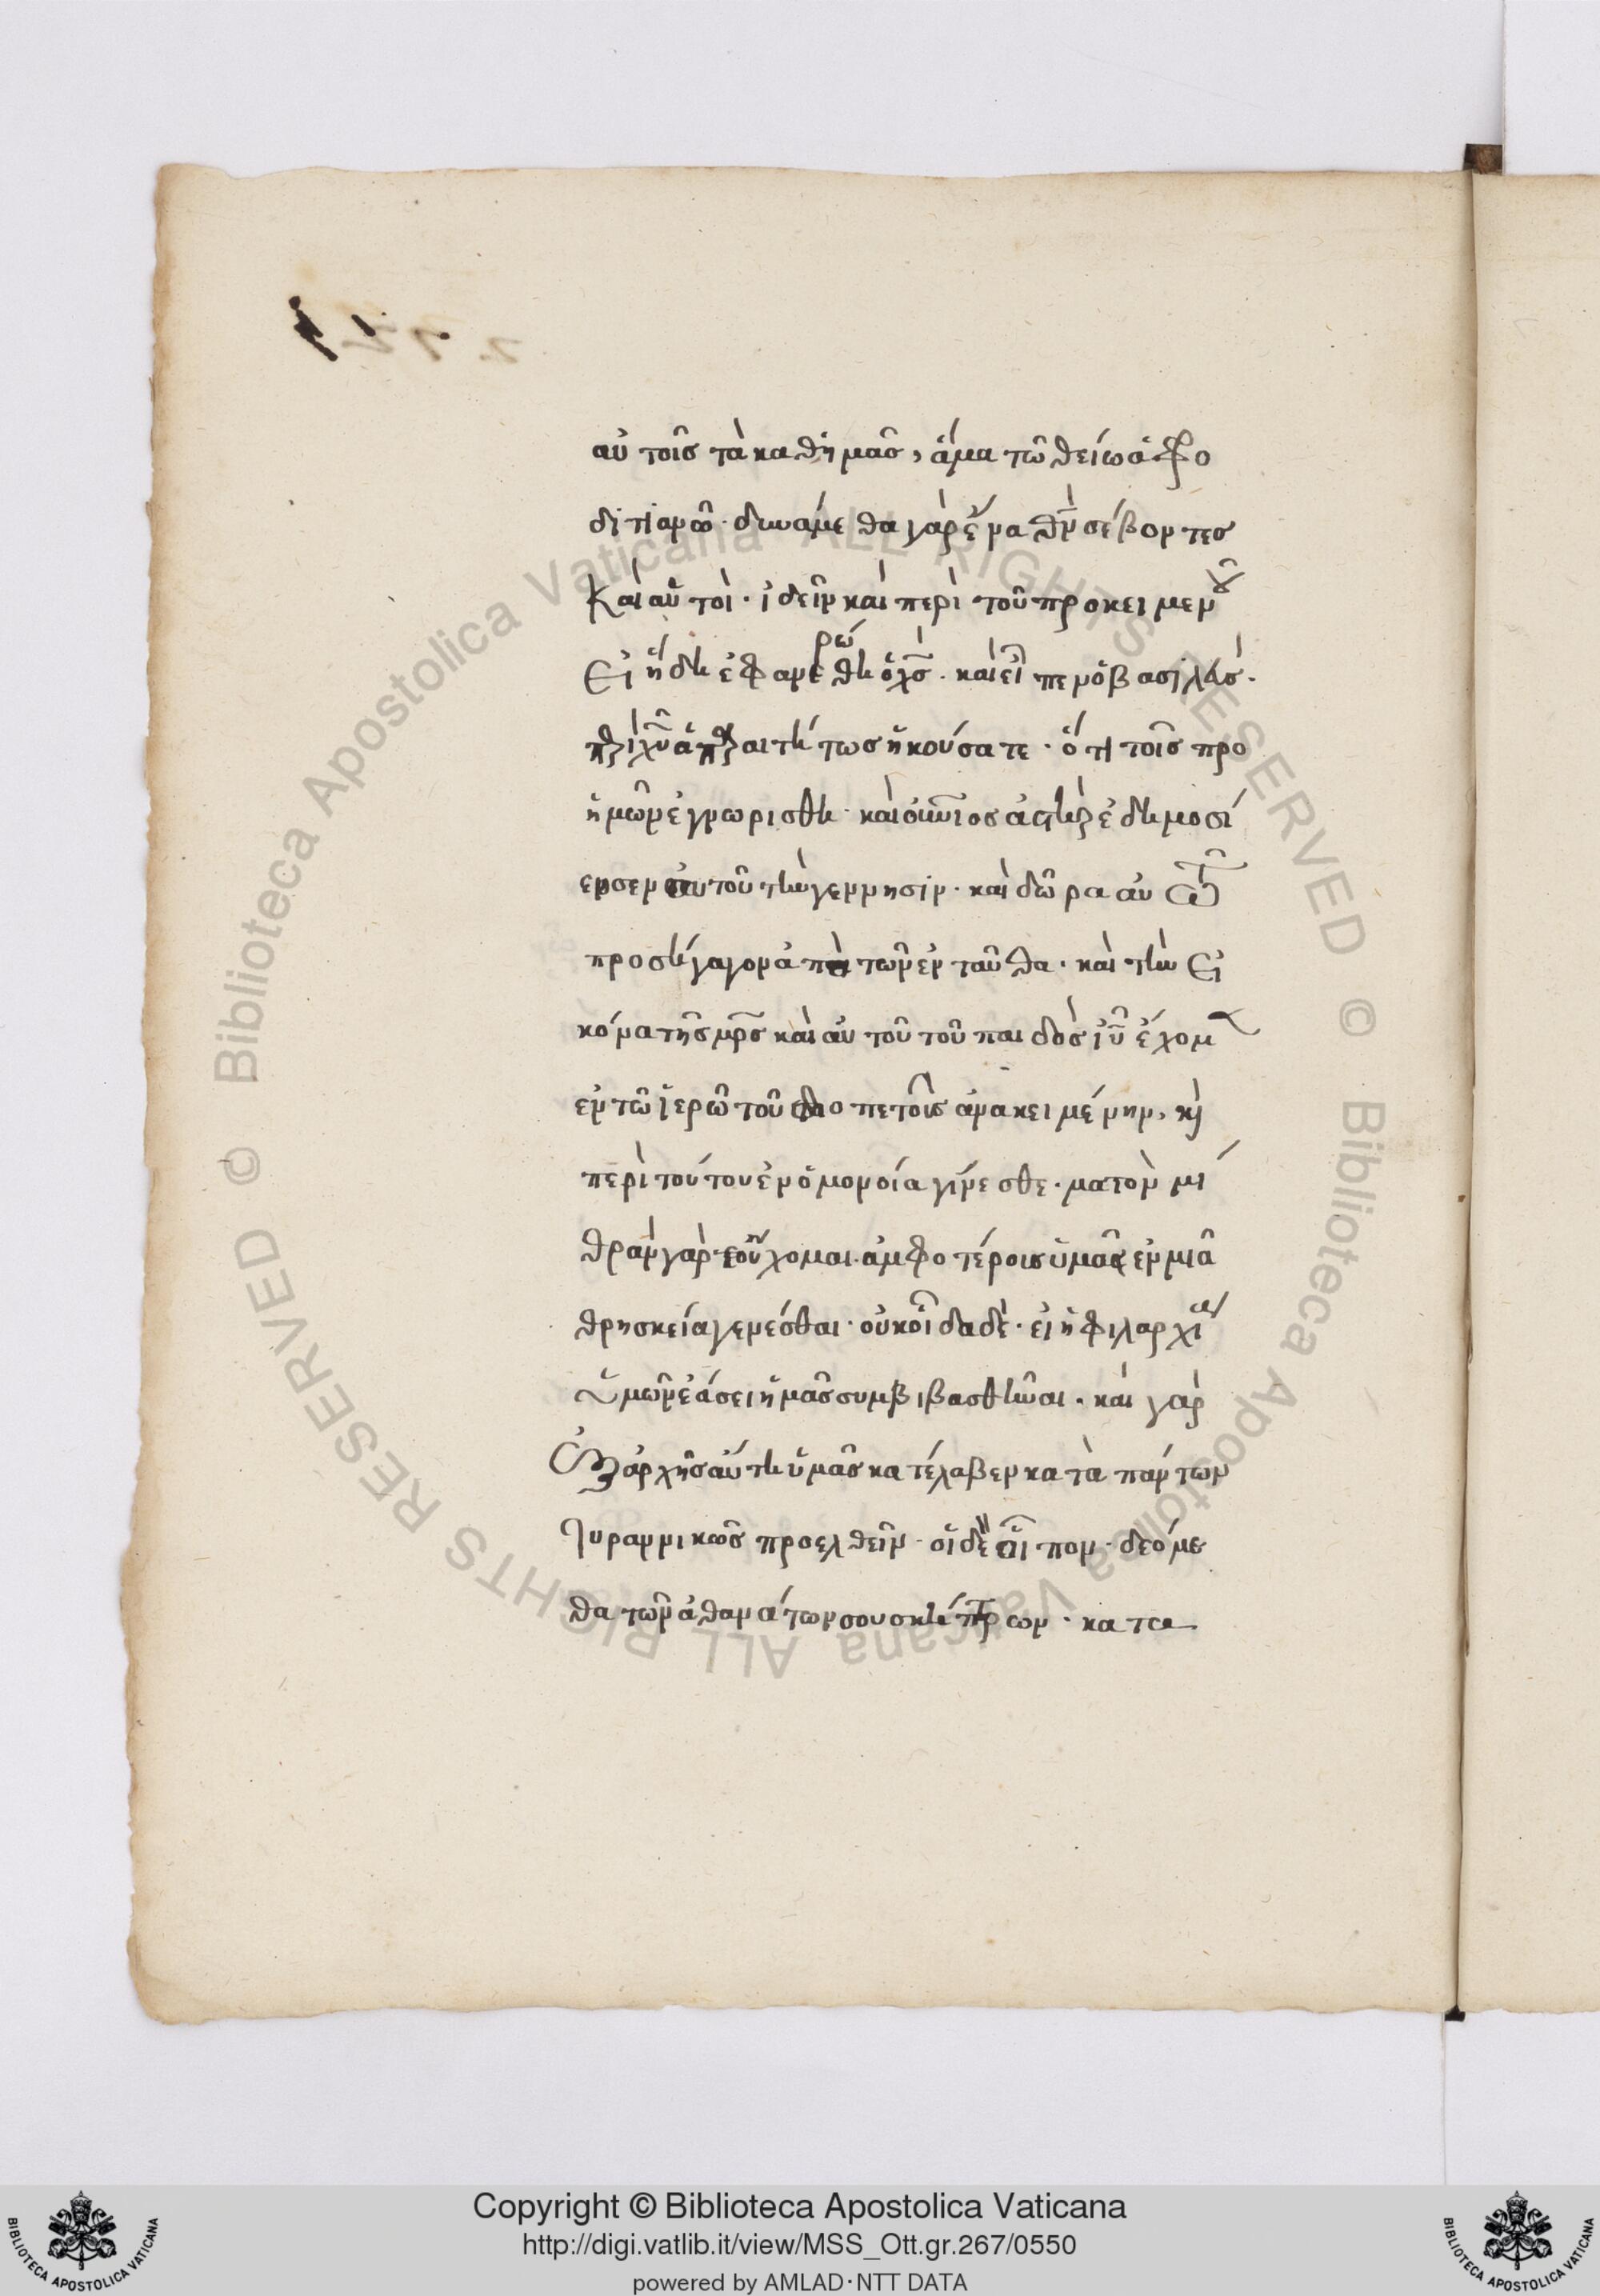 αὐτοῖς τὰ καθ ἡμᾶς, ἅμα τῶ θείω ἀφρο
διτιανῶ · δυνάμεθα γὰρ ἕνα θν̅ σέβοντες
καὶ αὐτοὶ · ἰδεῖν καὶ περὶ τοῦ προκειμένου
Εἰ ἤδη ἐφανερώθη ὁ χς̅ · καὶ εἶπεν ὁ βασιλεὺς ·
περὶ χυ̅ ἀπαραιτήτως ἠκούσατε · ὅτι τοῖς προ
ἡμῶν ἐγνωρίσθη · καὶ οὐνιος ἀστὴρ ἐδημοσί
ευσεν αὐτοῦ τὴν γέννησιν · καὶ δῶρα αὐτῶ
προσήγαγον ἀπὸ τῶν ἐνταῦθα · καὶ τὴν εἰ
κόνα τῆς μρ̅ς καὶ αὐτοῦ τοῦ παιδὸς ιυ̅ ἔχομεν
ἐν τῶ ἱερῶ τοῦ διοπετοῦς ἀνακειμένην, καὶ
περὶ τούτου ἐν ὁμονοία γίνεσθε · μα τὸν μί
θραν γὰρ εὔχομαι · ἀμφοτέροις ὑμᾶς ἐν μιᾶ
θρησκεία γενέσθαι · οὐκ οἶδα δὲ · εἰ ἡ φιλαρχία
ὑμῶν ἐάσει ἡμᾶς συμβιβασθῆναι · καὶ γὰρ
ἐξ ἀρχῆς αὕτη ὑμᾶς κατέλαβεν κατὰ πάντων
τυραννικῶς προελθεῖν · οἱ δὲ εἶπον · δεόμε
θα τῶν ἀθανάτων σου σκήπτρων · κατα
Copyright © Biblioteca Apostolica Vaticana
http://digi.vatlib.it/view/MSS_Ott.gr.267/0550
powered by AMLAD·NTT DATA